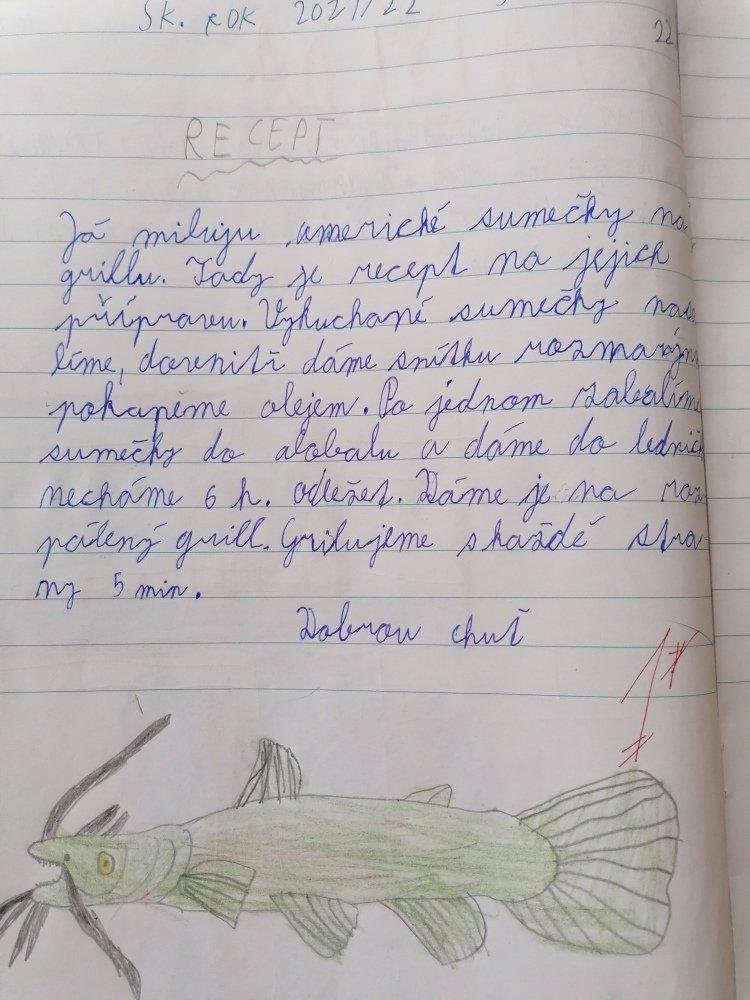 ŠK. ROK 2021/22
22
RECEPT
Já miluju americké sumečky na
grillu. Tady je recept na jejich
přípravu. Vykuchané sumečky naso
líme, dovnitř dáme snítku rozmarýnu
pokapeme olejem. Po jednom zabalíme
sumečky do alobalu a dáme do lednič
necháme 6 h. odležet. Dáme je na roz
pálený grill. Grilujeme z každé stra-
ny 5 min.
Dobrou chuť
1*
*